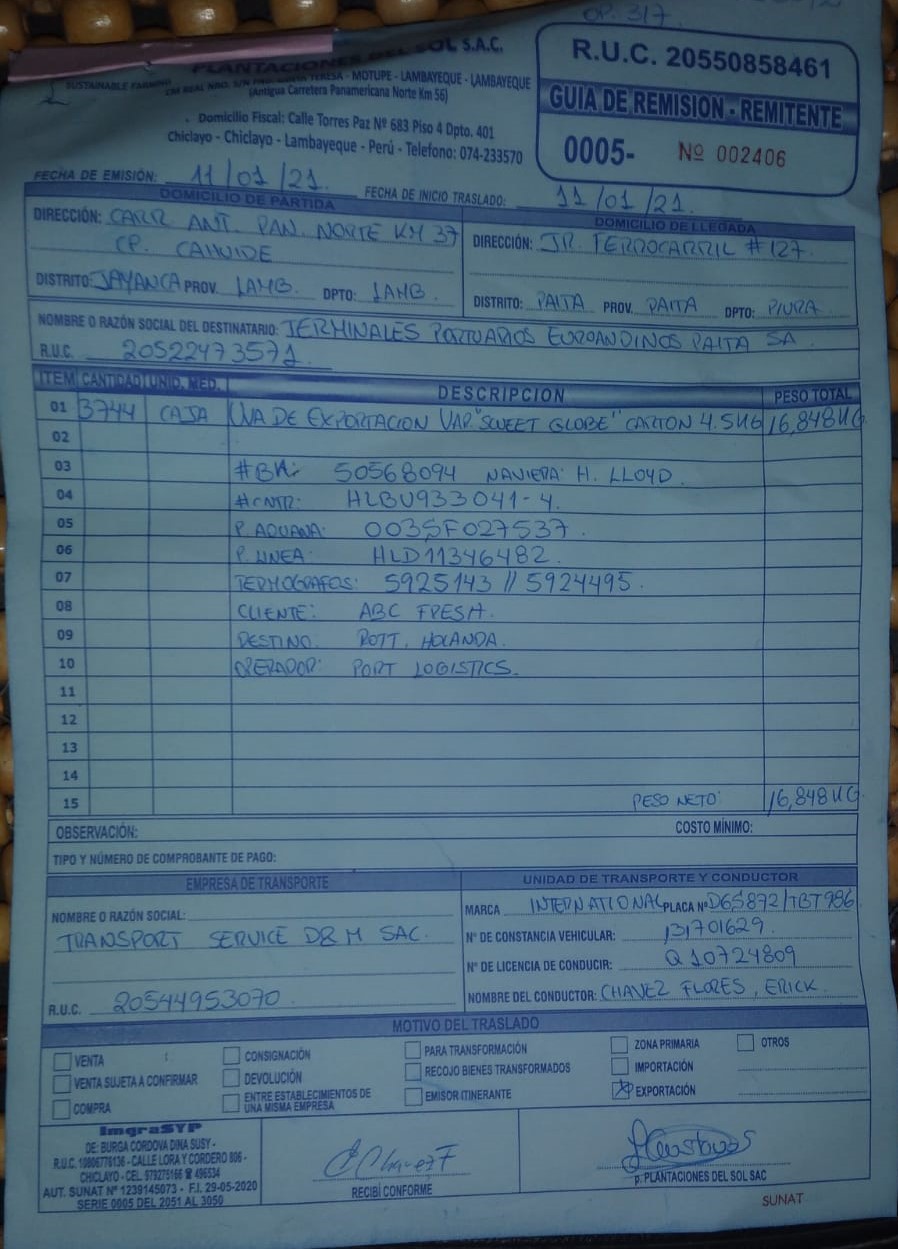 OP. 317
PLANTACIONES DEL SOL S.A.C.
SUSTAINABLE FARMING
TERESA - MOTUPE - LAMBAYEQUE - LAMBAYEQUE
(Antigua Carretera Panamericana Norte Km 56)
Domicilio Fiscal: Calle Torres Paz Nº 683 Piso 4 Dpto. 401
Chiclayo - Chiclayo - Lambayeque - Perú - Telefono: 074-233570
R.U.C. 20550858461
GUIA DE REMISION - REMITENTE
0005- Nº 002406
FECHA DE EMISIÓN: 11/01/21. FECHA DE INICIO TRASLADO: 11/01/21.
DOMICILIO DE PARTIDA
DIRECCIÓN: CARR ANT. PAN. NORTE KM 37
CP. CAHUIDE
DISTRITO: JAYANCA PROV. LAMB. DPTO: LAMB.
DOMICILIO DE LLEGADA
DIRECCIÓN: JR. FERROCARRIL #127.
DISTRITO: PAITA PROV. PAITA DPTO: PIURA.
NOMBRE O RAZÓN SOCIAL DEL DESTINATARIO: TERMINALES PORTUARIOS EUROANDINOS PAITA SA.
R.U.C. 20522473571.
ITEM CANTIDAD UNID. MED. DESCRIPCION PESO TOTAL
01 3744 CAJA UVA DE EXPORTACION VAR. "SWEET GLOBE" CARTON 4.5KG 16,848KG
02
03 #BK: 50568094 NAVIERA: H. LLOYD
04 #CNTR: HLBU933041-4.
05 P. ADUANA: 0035F027537.
06 P. LINEA: HLD11346482.
07 TERMOGRAFOS: 5925143 // 5924495.
08 CLIENTE: ABC FRESH.
09 DESTINO: ROTT. HOLANDA.
10 OPERADOR: PORT LOGISTICS.
11
12
13
14
15 PESO NETO: 16,848KG.
OBSERVACIÓN: COSTO MÍNIMO:
TIPO Y NÚMERO DE COMPROBANTE DE PAGO:
EMPRESA DE TRANSPORTE
NOMBRE O RAZÓN SOCIAL:
TRANSPORT SERVICE D&M SAC.
R.U.C. 20544953070
UNIDAD DE TRANSPORTE Y CONDUCTOR
MARCA INTERNATIONAL PLACA Nº D6S872/TBT986
Nº DE CONSTANCIA VEHICULAR: 131701629.
Nº DE LICENCIA DE CONDUCIR: Q10724809
NOMBRE DEL CONDUCTOR: CHAVEZ FLORES, ERICK.
MOTIVO DEL TRASLADO
VENTA CONSIGNACIÓN PARA TRANSFORMACIÓN ZONA PRIMARIA OTROS
VENTA SUJETA A CONFIRMAR DEVOLUCIÓN RECOJO BIENES TRANSFORMADOS IMPORTACIÓN
COMPRA ENTRE ESTABLECIMIENTOS DE UNA MISMA EMPRESA EMISOR ITINERANTE EXPORTACIÓN
ImgraSYP
DE: BURGA CORDOVA DINA SUSY -
R.U.C. 10806776136 - CALLE LORA Y CORDERO 806 -
CHICLAYO - CEL. 979275166 ☎ 496534
AUT. SUNAT Nº 1239145073 - F.I. 29-05-2020
SERIE 0005 DEL 2051 AL 3050
RECIBÍ CONFORME
p. PLANTACIONES DEL SOL SAC
SUNAT